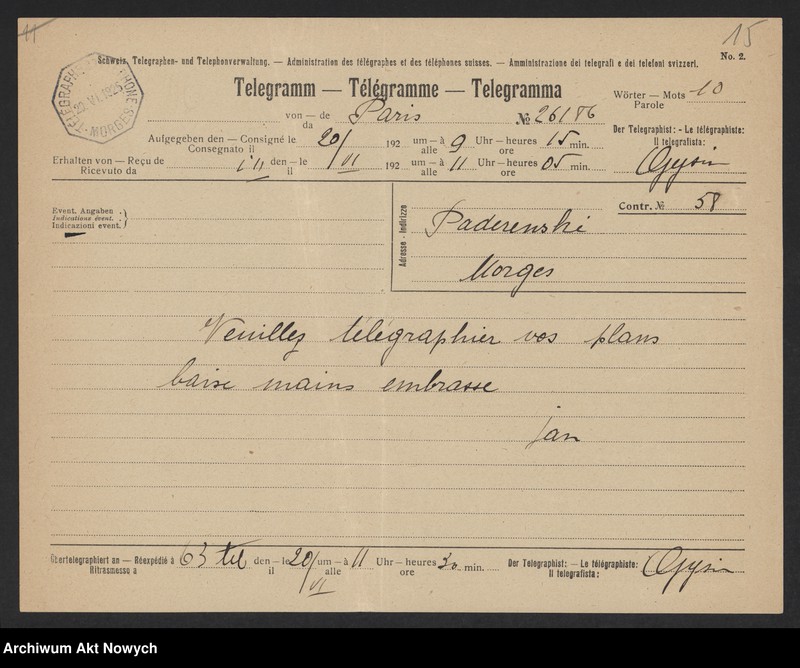 15
No. 2.
Schweiz. Telegraphen- und Telephonverwaltung. — Administration des télégraphes et des téléphones suisses. — Amministrazione dei telegrafi e dei telefoni svizzeri.
Telegramm — Télégramme — Telegramma
Wörter — Mots 10
Parole
von — de Paris № 26186
da
Aufgegeben den — Consigné le 20/ 192 um — à 9 Uhr — heures 15 min.
Consegnato il alle ore
Erhalten von — Reçu de den — le VI 192 um — à 11 Uhr — heures 05 min.
Ricevuto da il alle ore
Der Telegraphist: - Le télégraphiste:
Il telegrafista:
Gysin
Event. Angaben
Indications évent.
Indicazioni event.
Adresse - Indirizzo
Contr. № 58
Paderenski
Morges
Veuillez télégraphier vos plans
baise mains embrasse
jan
Übertelegraphiert an — Réexpédié à 63 tel den — le 20/VI um — à 11 Uhr — heures 30 min.
Ritrasmesso a il alle ore
Der Telegraphist: — Le télégraphiste:
Il telegrafista:
Gysin
MORGES
Archiwum Akt Nowych